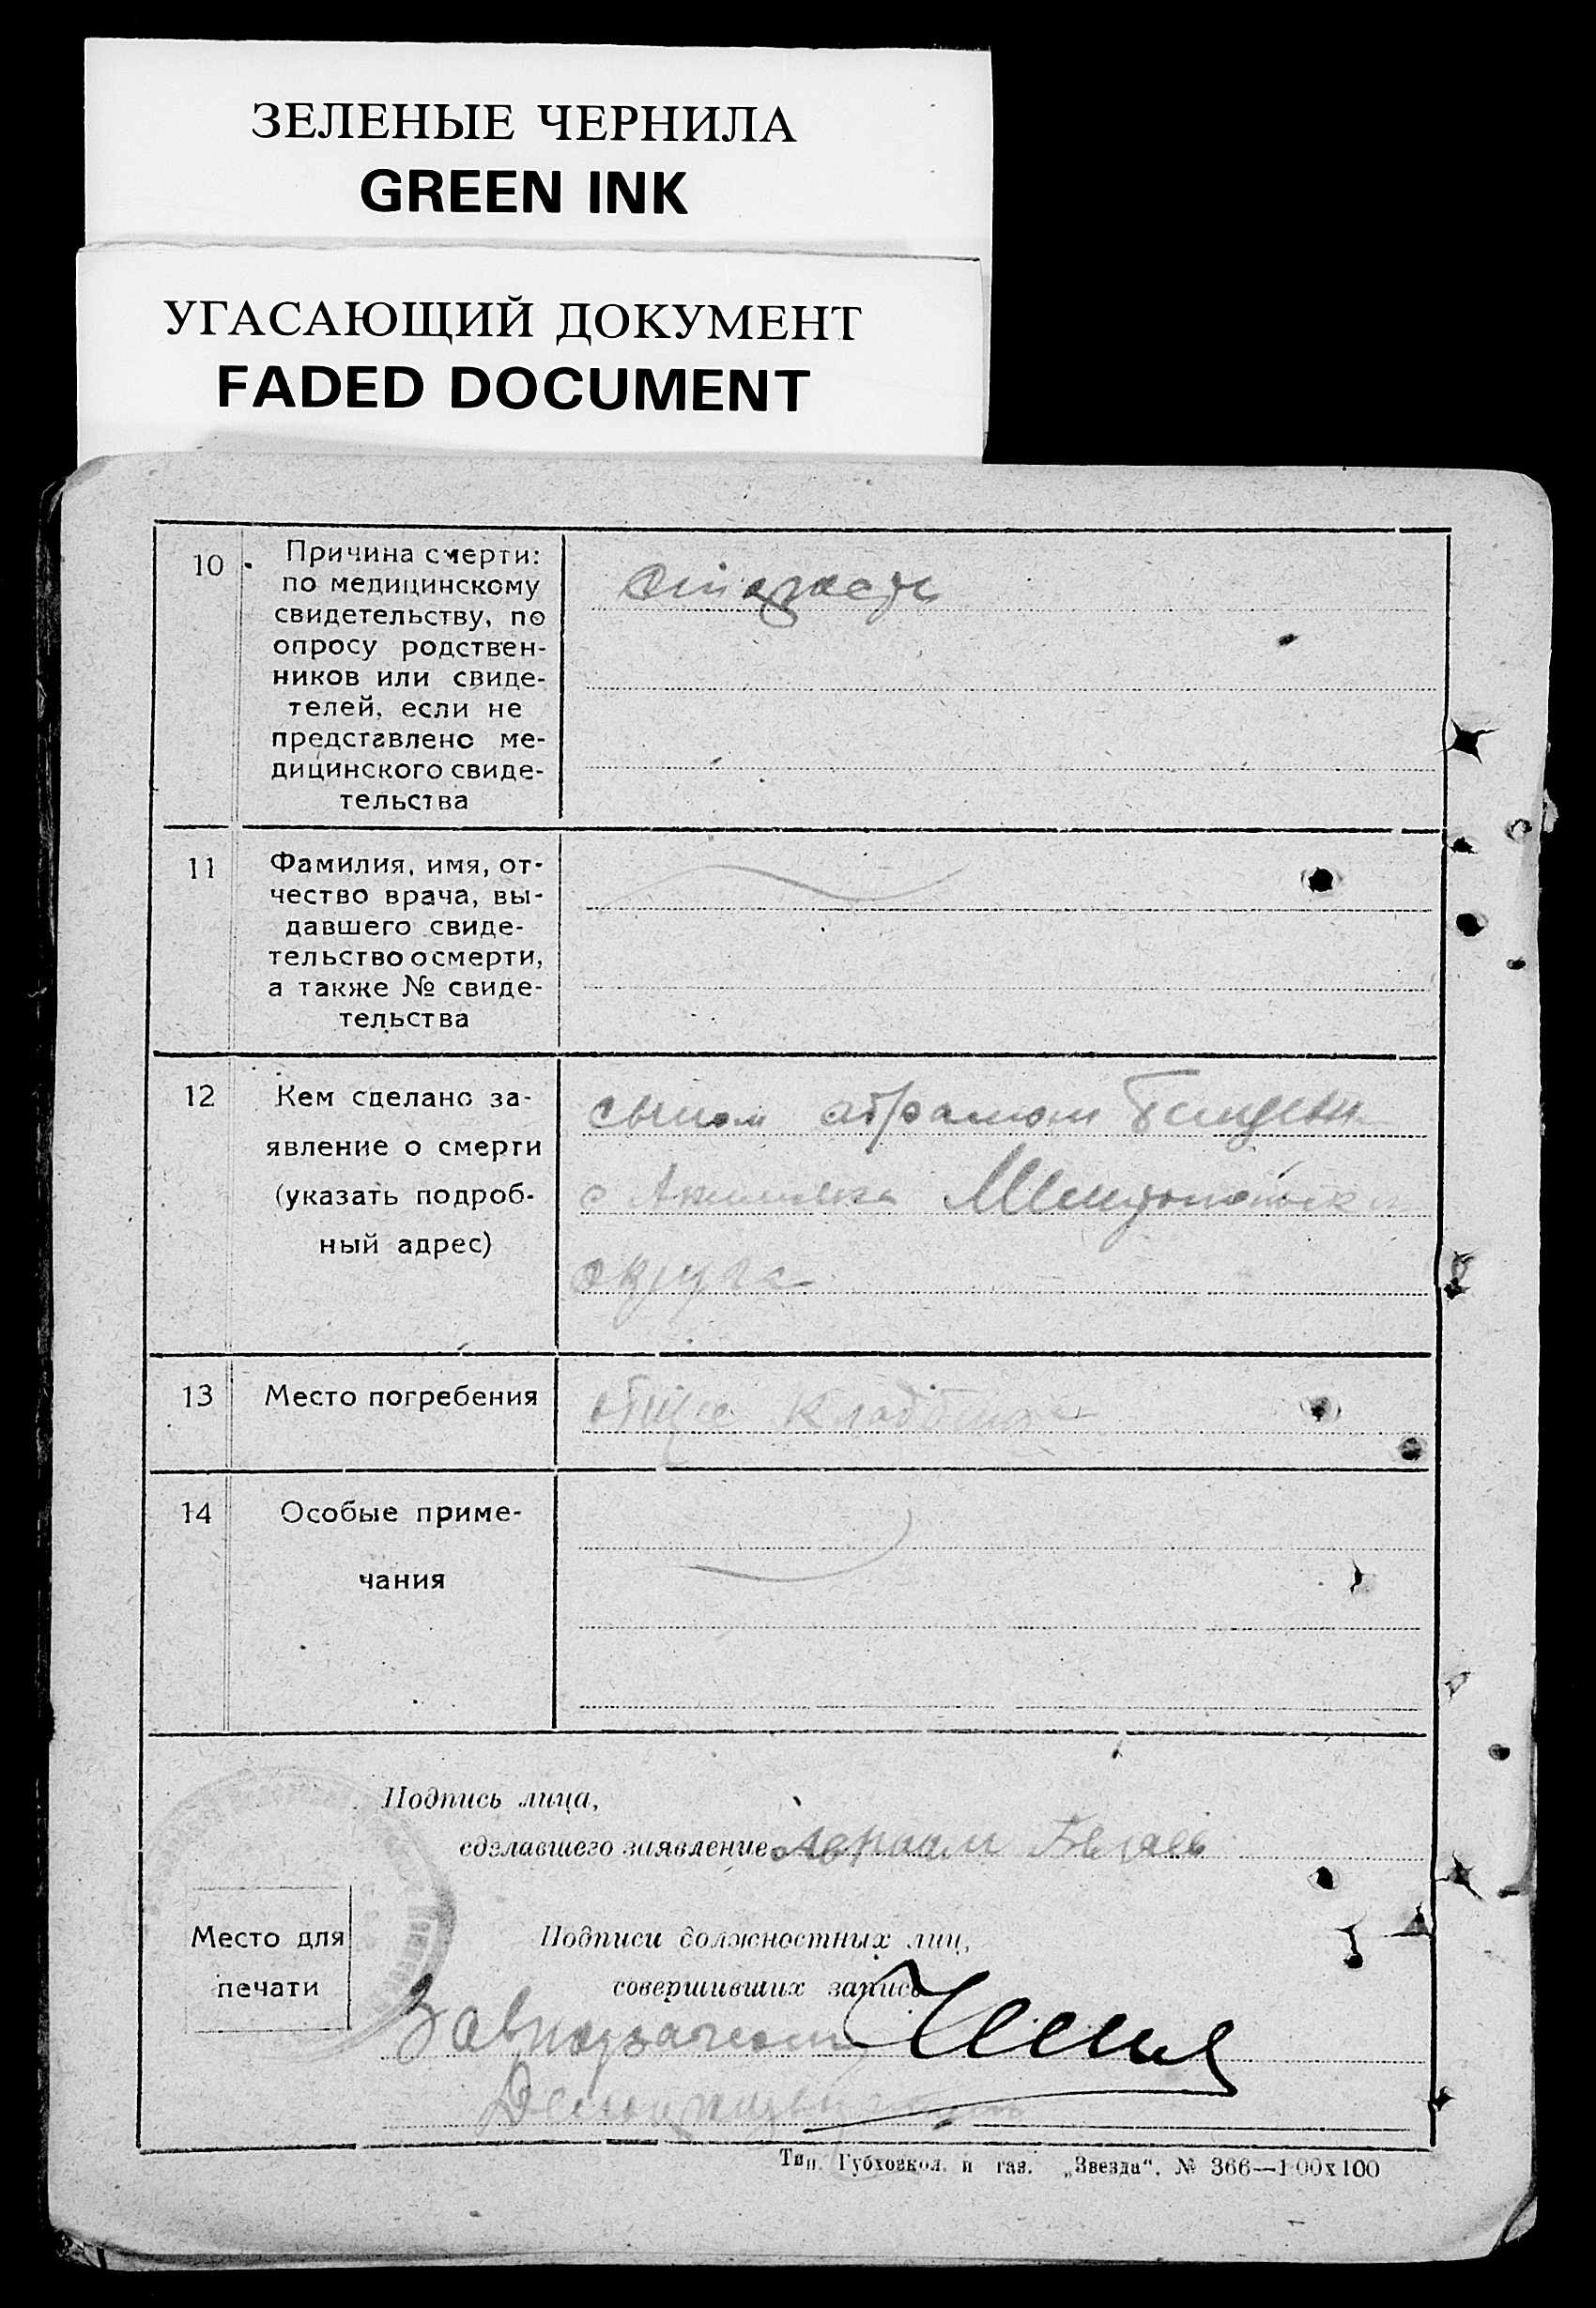 ЗЕЛЕНЫЕ ЧЕРНИЛА
GREEN INK
УГАСАЮЩИЙ ДОКУМЕНТ
FADED DOCUMENT
10 Причина смерти:
по медицинскому
свидетельству, по
опросу родствен-
ников или свиде-
телей, если не
представлено ме-
дицинского свиде-
тельства
старость
11 Фамилия, имя, от-
чество врача, вы-
давшего свиде-
тельство о смерти,
а также № свиде-
тельства
12 Кем сделано за-
явление о смерти
(указать подроб-
ный адрес)
сыном
с Акимовка
округа
13 Место погребения
общее кладбище
14 Особые приме-
чания
Подпись лица,
сделавшего заявление
Место для
печати
Подписи должностных лиц,
совершивших запись
Тип. Губхозкол. и газ. „Звезда“. № 366—100x100